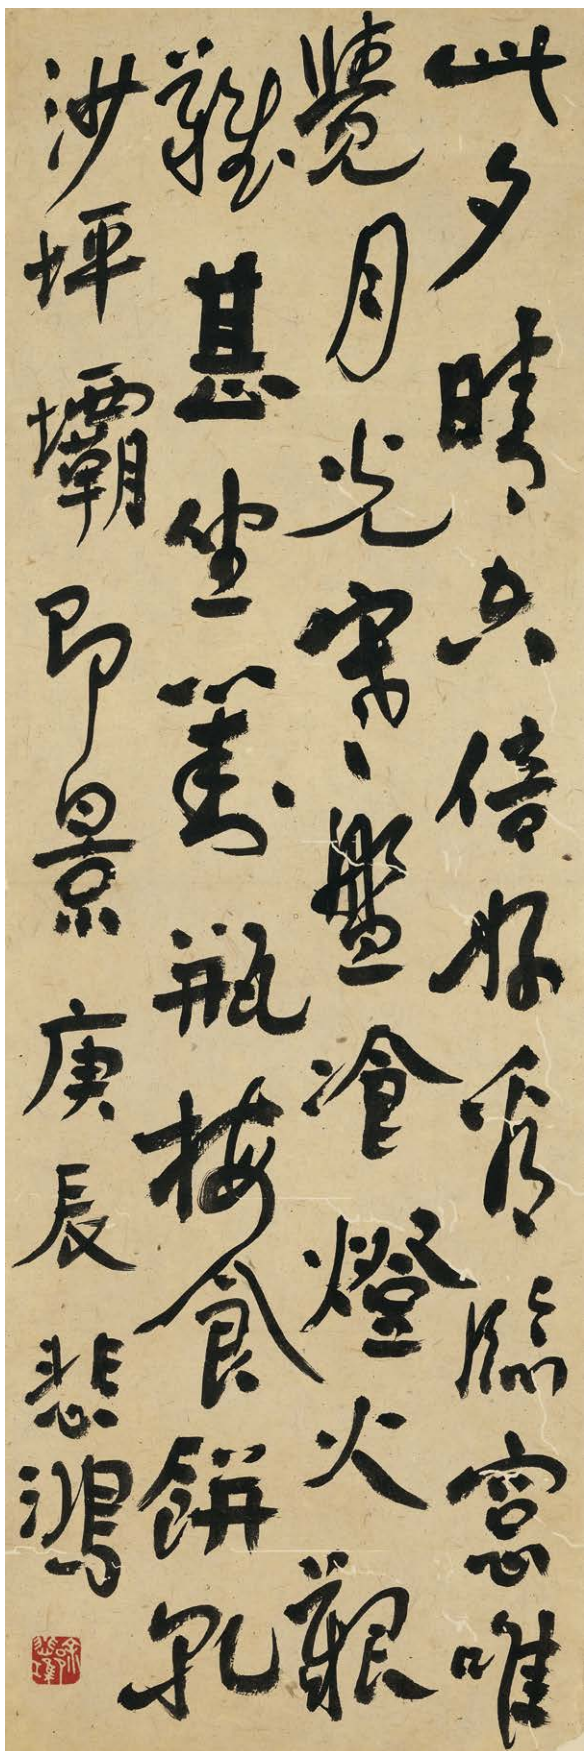 此夕晴空倍好看臨窗唯
覺月光寒盤飡燈火艱
難甚坐對瓶梅食餅乾
沙坪壩即景庚辰悲鴻